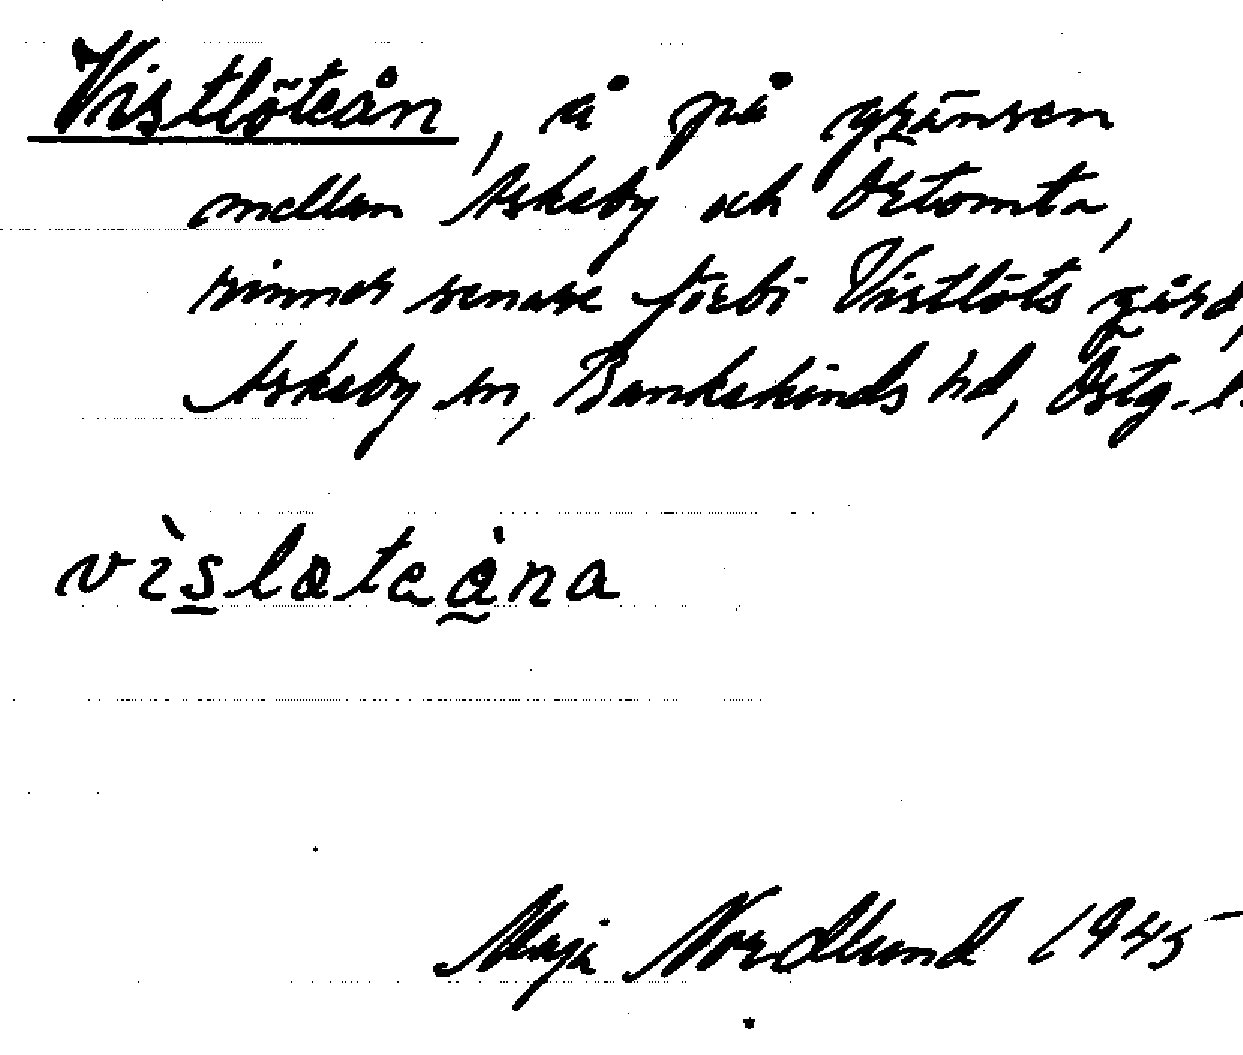 Vistlöteån, å på gränsen
mellan Askeby och Örtomta,
rinner senare förbi Vistlöts gård,
Askeby sn, Bankekinds hd, Östg. l.
vìslöteåna
Maja Nordlund 1945